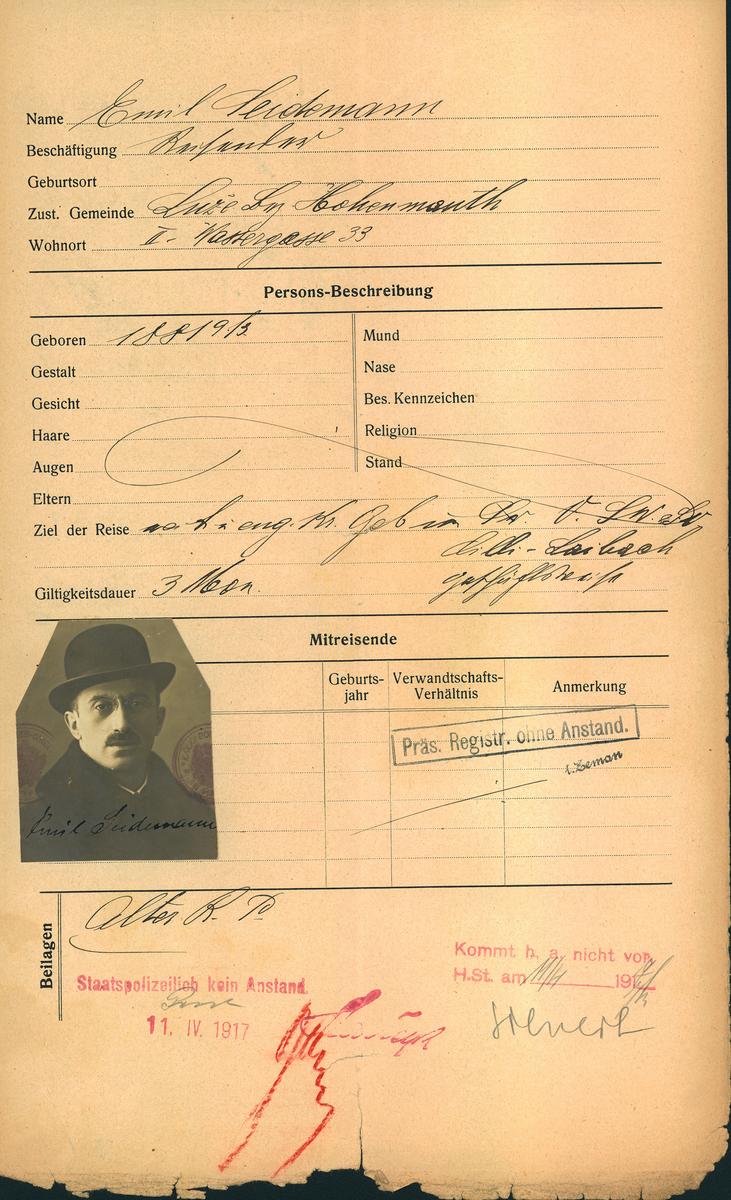 Name Emil Seidemann
Beschäftigung Reisender
Geburtsort
Zust. Gemeinde Luže Bz Hohenmauth
Wohnort II - Wassergasse 33
Persons-Beschreibung
Geboren 1881 9/3
Gestalt
Gesicht
Haare
Augen
Mund
Nase
Bes. Kennzeichen
Religion
Stand
Eltern
Ziel der Reise
Cilli - Laibach
Giltigkeitsdauer 3 Mon.
Mitreisende
Geburts-
jahr
Verwandtschafts-
Verhältnis
Anmerkung
Präs. Registr. ohne Anstand.
Zeman
Emil Seidemann
Beilagen
Alter R. P
Staatspolizeilich kein Anstand.
11. IV. 1917
Kommt h. a. nicht vor.
H.St. am 11/4 1917